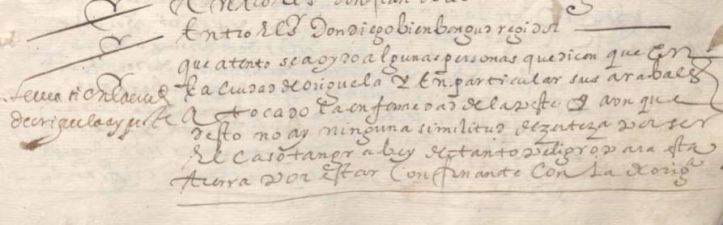 Entro El Sr Don diego bienbengud regidor
que atento se a oydo a algunas personas que dicen que En
la ciudad de origuela y En particular sus arabales
A tocado la enfermedad de la peste y aun que
desto no ay ninguna similitud de zerteza por ser
El caso tan grabe y de tanto peligro para esta
tierra por estar Confinante Con la de origla
de origuela ay peste